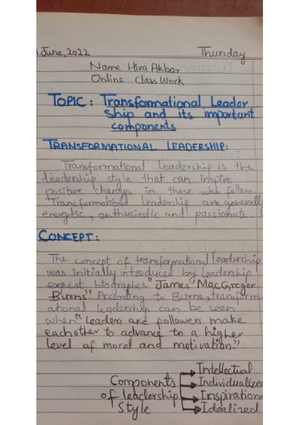 June, 2022 Thursday
Name Hira Akbar
Online Class Work
TOPIC: Transformational Leader
ship and its important
components
TRANSFORMATIONAL LEADERSHIP:
Transformational Leadership is the
leadership style that can inspire
positive changes in those who follow.
Transformational leadership are generally
energetic, enthusiastic and passionate
CONCEPT:
The concept of transformational leadership
was initially introduced by leadership
expert biographer "James MacGregor
Burins" According to Burns, transform
ational leadership can be seen
when "leaders are followers make
eachother to advance to a higher
level of moral and motivation."
Components of leadership Style
Intellectual
Individualized
Inspiration
Idealized